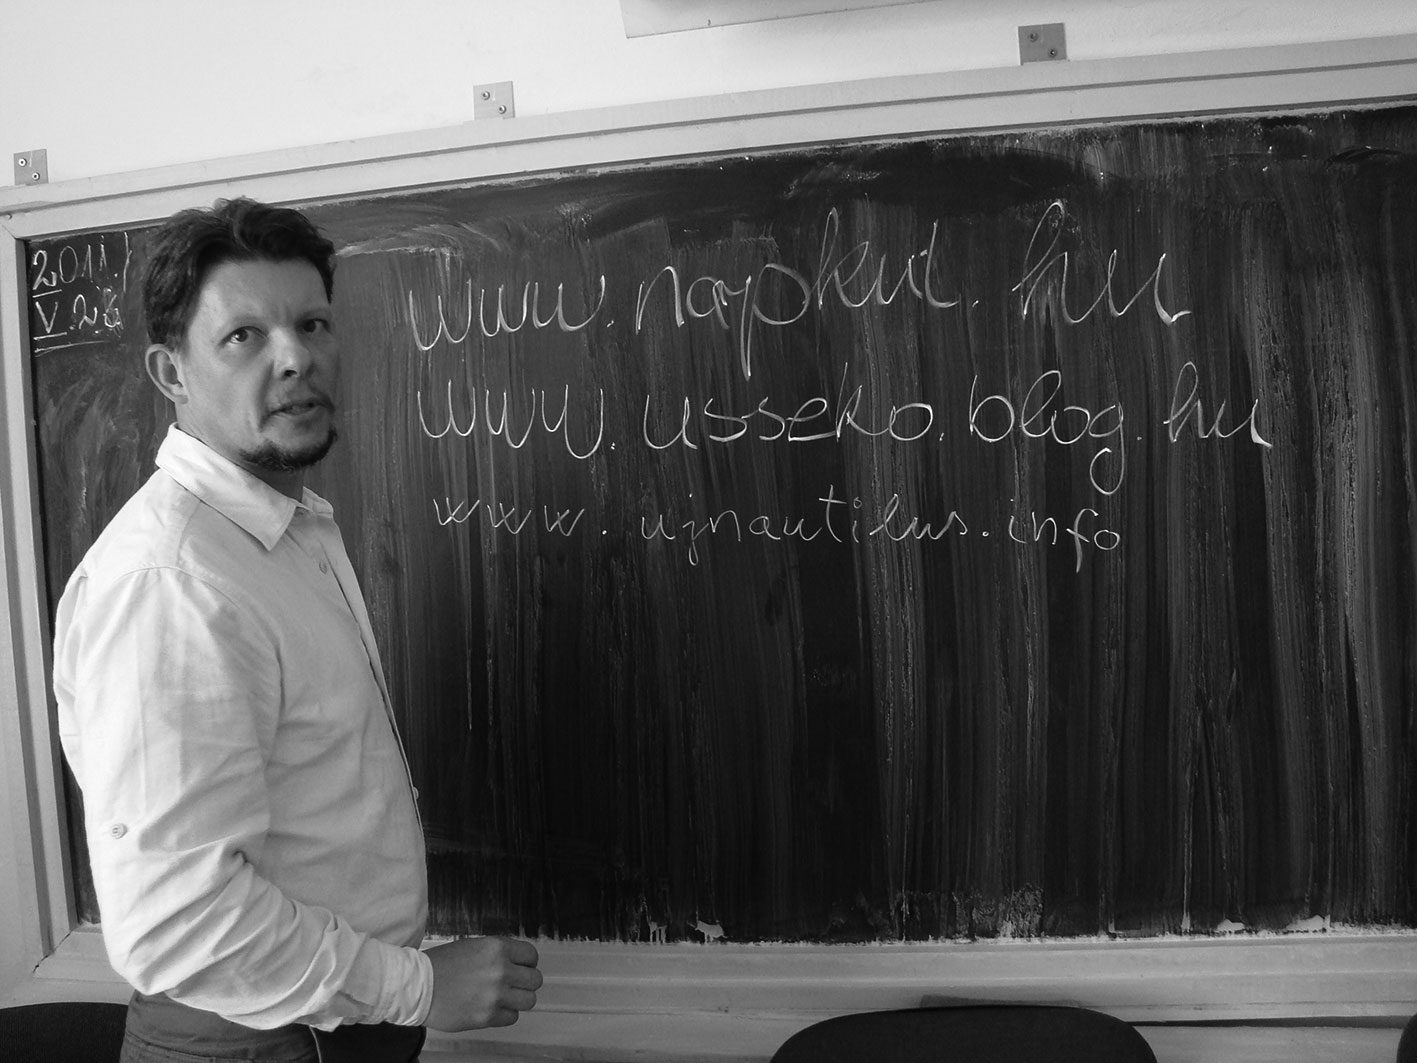 2011.
V.28
www.napkut.hu
www.usseko.blog.hu
www.ujnautilus.info